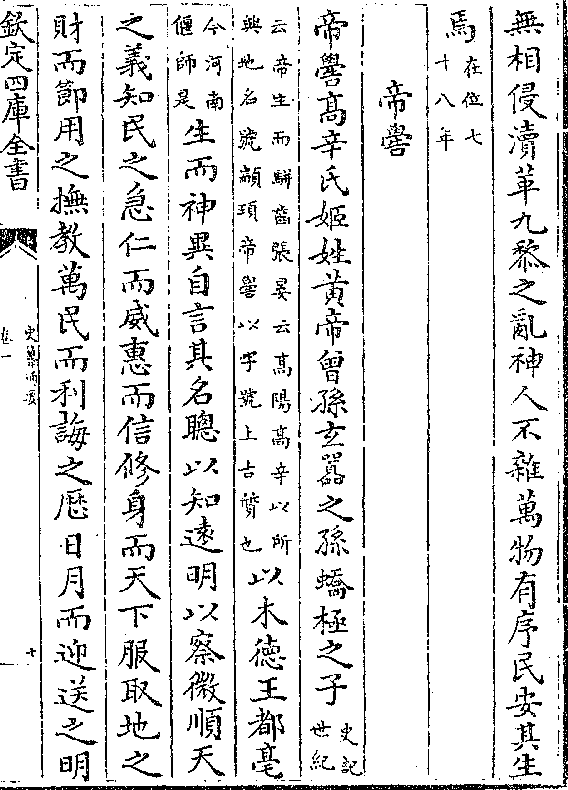 無相侵瀆革九黎之亂神人不雜萬物有序民安其生
焉在位七十八年
帝嚳
帝嚳高辛氏姬姓黃帝曾孫玄囂之孫蟜極之子史記世紀
云帝生而駢齒張晏云高陽高辛以所興地名號顓頊帝嚳以字號上古質也以木德王都亳
今河南偃師是生而神異自言其名聰以知遠明以察微順天
之義知民之急仁而威惠而信修身而天下服取地之
財而節用之撫教萬民而利誨之歴日月而迎送之明
欽定四庫全書
卷一
十